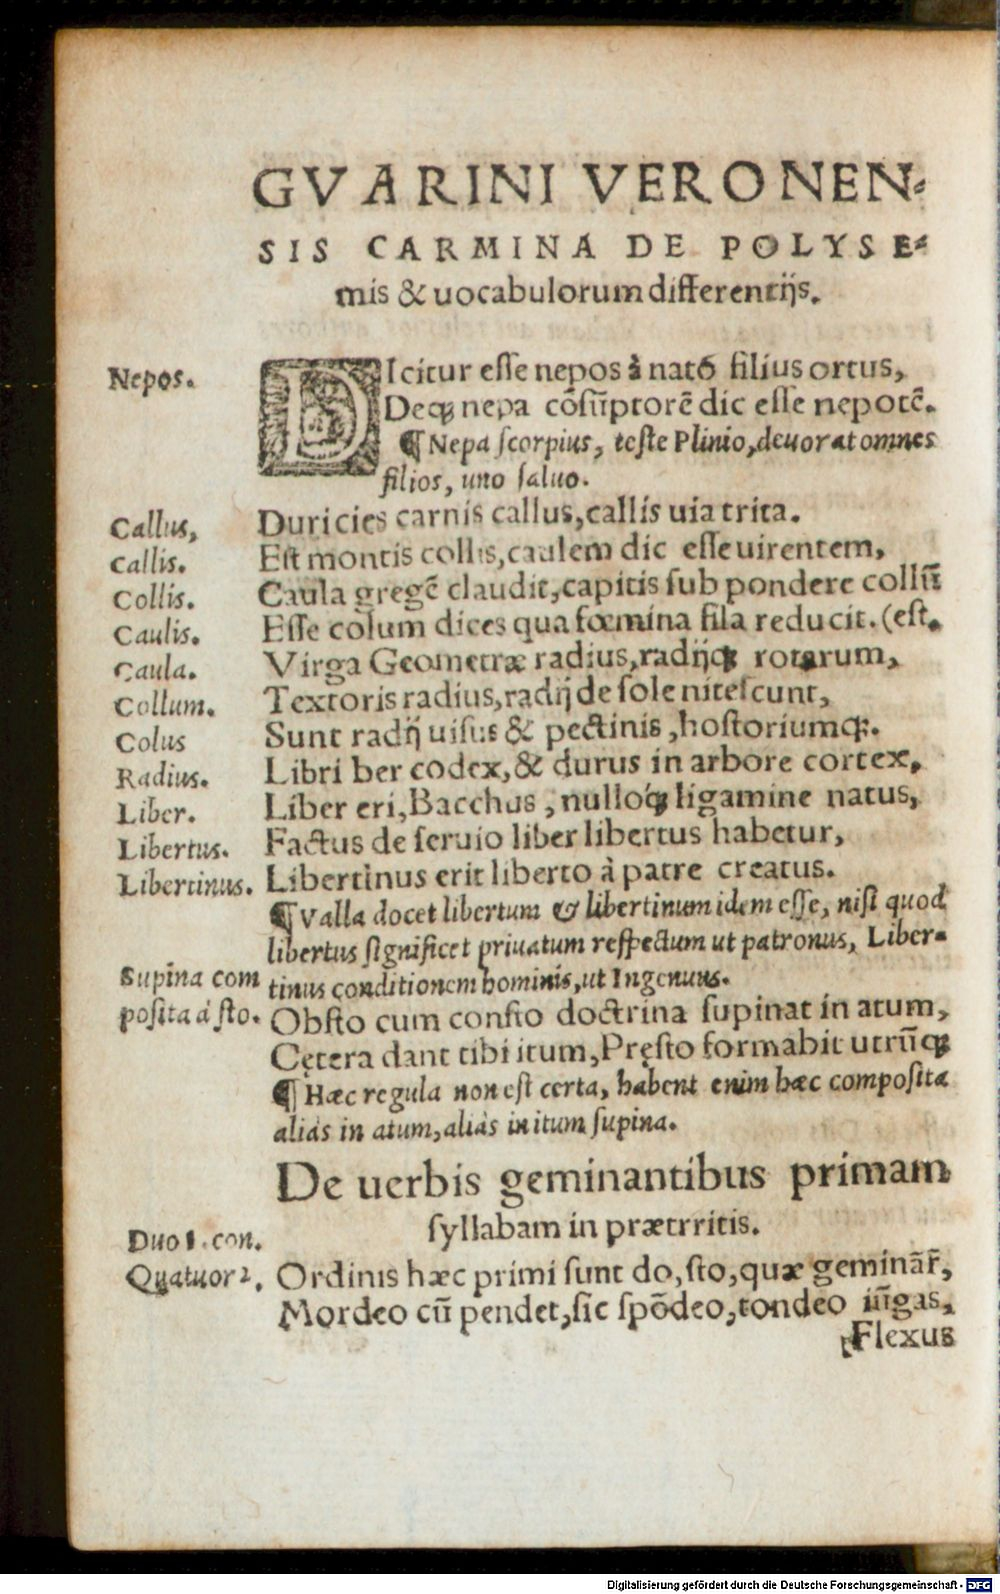 GVARINI VERONEN-
SIS CARMINA DE POLYSE-
mis & uocabulorum differentijs.
Nepos.
DIcitur esse nepos à nató filius ortus,
Decꝗ nepa cõsũptorẽ dic esse nepotẽ.
¶ Nepa scorpius, teste Plinio, deuorat omnes
filios, uno saluo.
Callus, Duricies carnis callus, callis uia trita.
Callis. Est montis collis, caulem dic esse uirentem,
Collis. Caula gregẽ claudit, capitis sub pondere collũ
Caulis. Esse colum dices qua fœmina fila reducit. (est.
Caula. Virga Geometræ radius, radijcꝗ rotarum,
Collum. Textoris radius, radij de sole nitescunt,
Colus Sunt radij uisus & pectinis, hostoriumcꝗ.
Radius. Libri ber codex, & durus in arbore cortex,
Liber. Liber eri, Bacchus, nullocꝗ ligamine natus,
Libertus. Factus de seruio liber libertus habetur,
Libertinus. Libertinus erit liberto à patre creatus.
¶ Valla docet libertum & libertinum idem esse, nisi quod
libertus significet priuatum respectum ut patronus, Liber-
Supina com tinus conditionem hominis, ut Ingenuus.
posita á sto. Obsto cum consto doctrina supinat in atum,
Cętera dant tibi itum, Pręsto formabit utrũcꝗ
¶ Hæc regula non est certa, habent enim hæc composita
aliàs in atum, aliàs in itum supina.
De uerbis geminantibus primam
syllabam in prætrritis.
Duo 1. con.
Quatuor 2. Ordinis hæc primi sunt do, sto, quæ geminãr̃,
Mordeo cũ pendet, sic spõdeo, tondeo iũgas,
Flexus
Digitalisierung gefördert durch die Deutsche Forschungsgemeinschaft - DFG